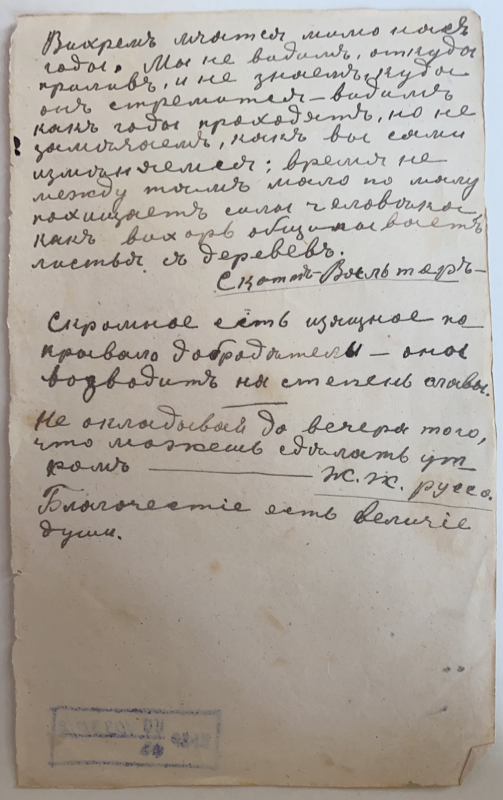 Вихремъ мчатся мимо насъ
годы. Мы не видимъ, откуда
приливъ, и не знаемъ, куда
онъ стремится – видимъ
какъ годы проходятъ, но не
замѣчаемъ, какъ вы сами
измѣняемся; время не
между тѣмъ мало по малу
похищаетъ силы человѣка,
какъ вихорь общипываетъ
листья съ деревевъ.
Скоттъ-Вальтеръ –
Скромное есть изящное по
крывало добродѣтели – оно
возводитъ на степень славы.
Не окладывай до вечера того,
что можешь сдѣлать ут
ромъ
Ж. Ж. Руссо.
Благочестіе есть величіе
души.